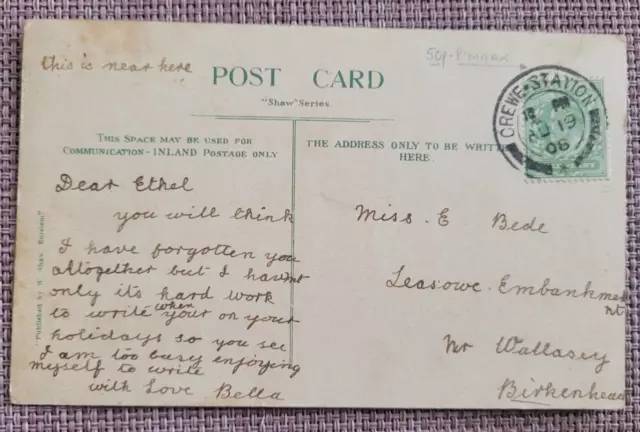 this is near here
50/- P'MARK
POST CARD
"Shaw" Series.
THIS SPACE MAY BE USED FOR
COMMUNICATION - INLAND POSTAGE ONLY
THE ADDRESS ONLY TO BE WRITTEN
HERE.
CREWE-STATION
12 PM
19
06
Dear Ethel
you will think
I have forgotten you
altogether but I havent
only its hard work
to write when your on your
holidays so you see
I am too busy enjoying
myself to write
with Love Bella
Miss. E Bede
Leasowe Embankme
nt
Nr Wallasey
Birkenhead
"Published by W. Shaw, Burslem"